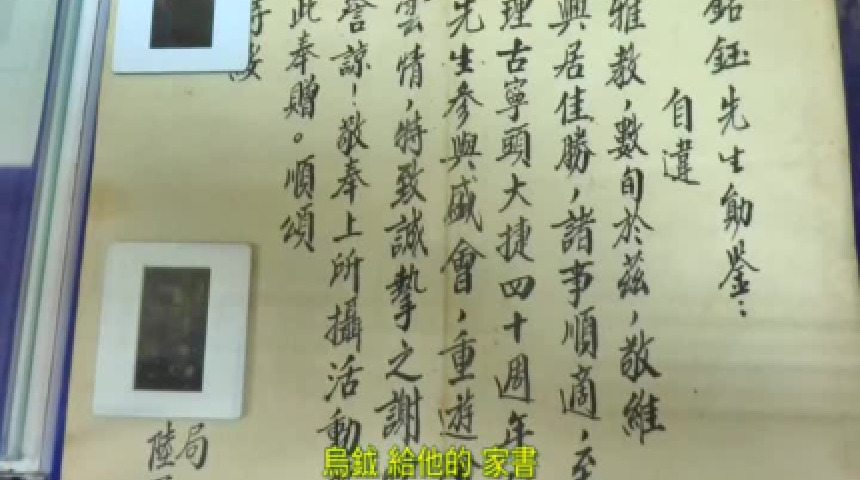 銘鈺先生勛鑒：
自違
雅教，數旬於茲，敬維
興居佳勝，諸事順適，至
理古寧頭大捷四十週年
先生參與盛會，重遊
雲情，特致誠摯之謝
詧諒！敬奉上所攝活動
此奉贈。順頌
時綏
陸
局
烏鉞 給他的 家書